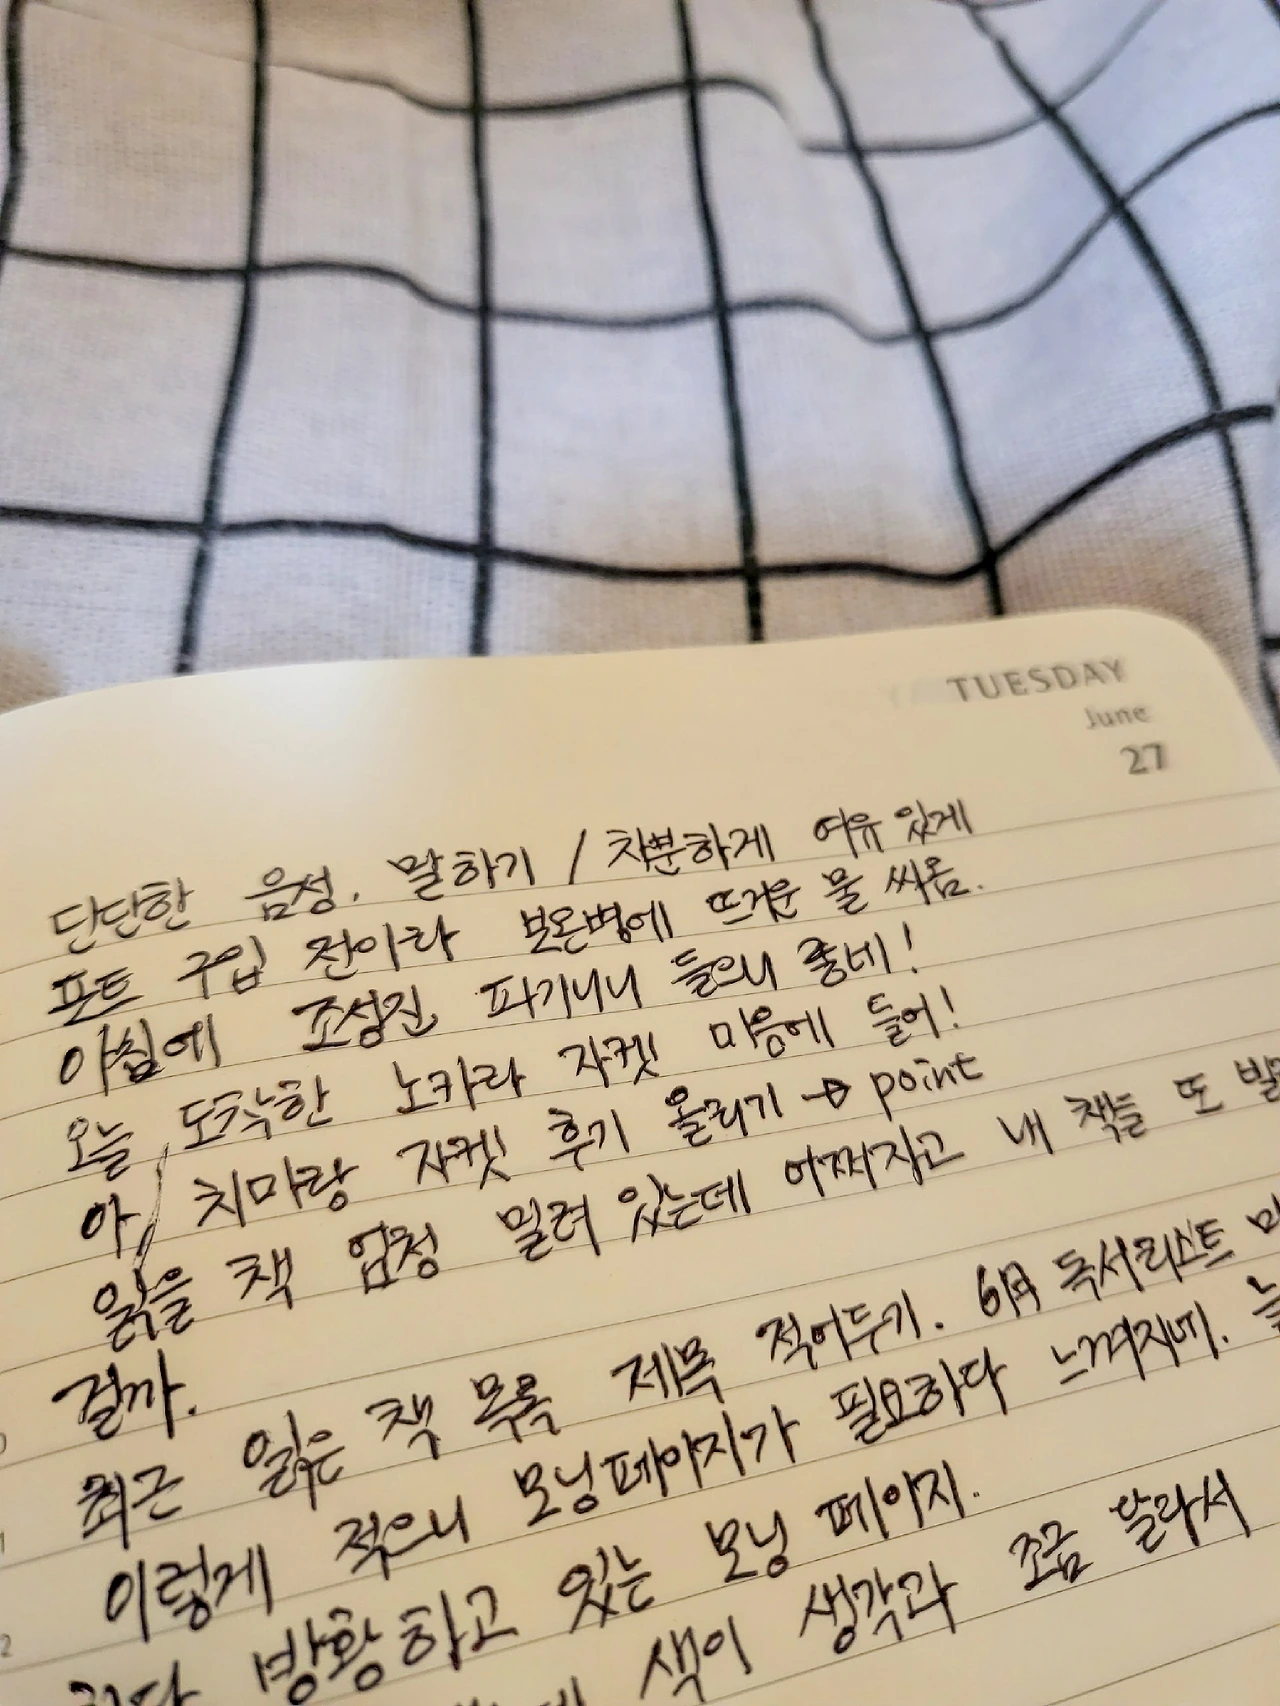 TUESDAY
June
27
단단한 음성. 말하기 / 차분하게 여유 있게
포트 구입 전이라 보온병에 뜨거운 물 싸옴.
아침에 조성진 파가니니 들으니 좋네!
오늘 도착한 노카라 자켓 마음에 들어!
아, 치마랑 자켓 후기 올리기 → point
읽을 책 엄청 밀려 있는데 어찌자고 내 책들 또
걸까.
최근 읽은 책 목록 제목 적어두기. 6月 독서리스트
이렇게 적으니 모닝페이지가 필요하다 느껴지네.
방황하고 있는 모닝 페이지.
색이 생각과 조금 달라서